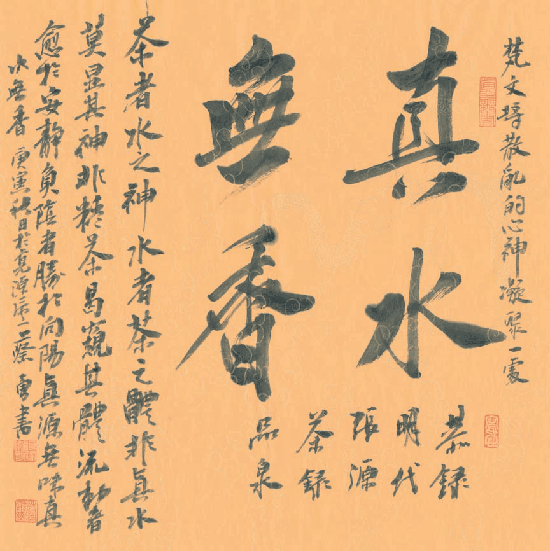 梵文培散亂的心神凝聚一處
真水
無香
恭録
明代
張源
茶録
品泉
茶者水之神水者茶之體非真水
莫显其神非精茶曷窺其體流動者
愈於安靜負陰者勝於向陽真源無味真
水無香 庚寅秋日於 書